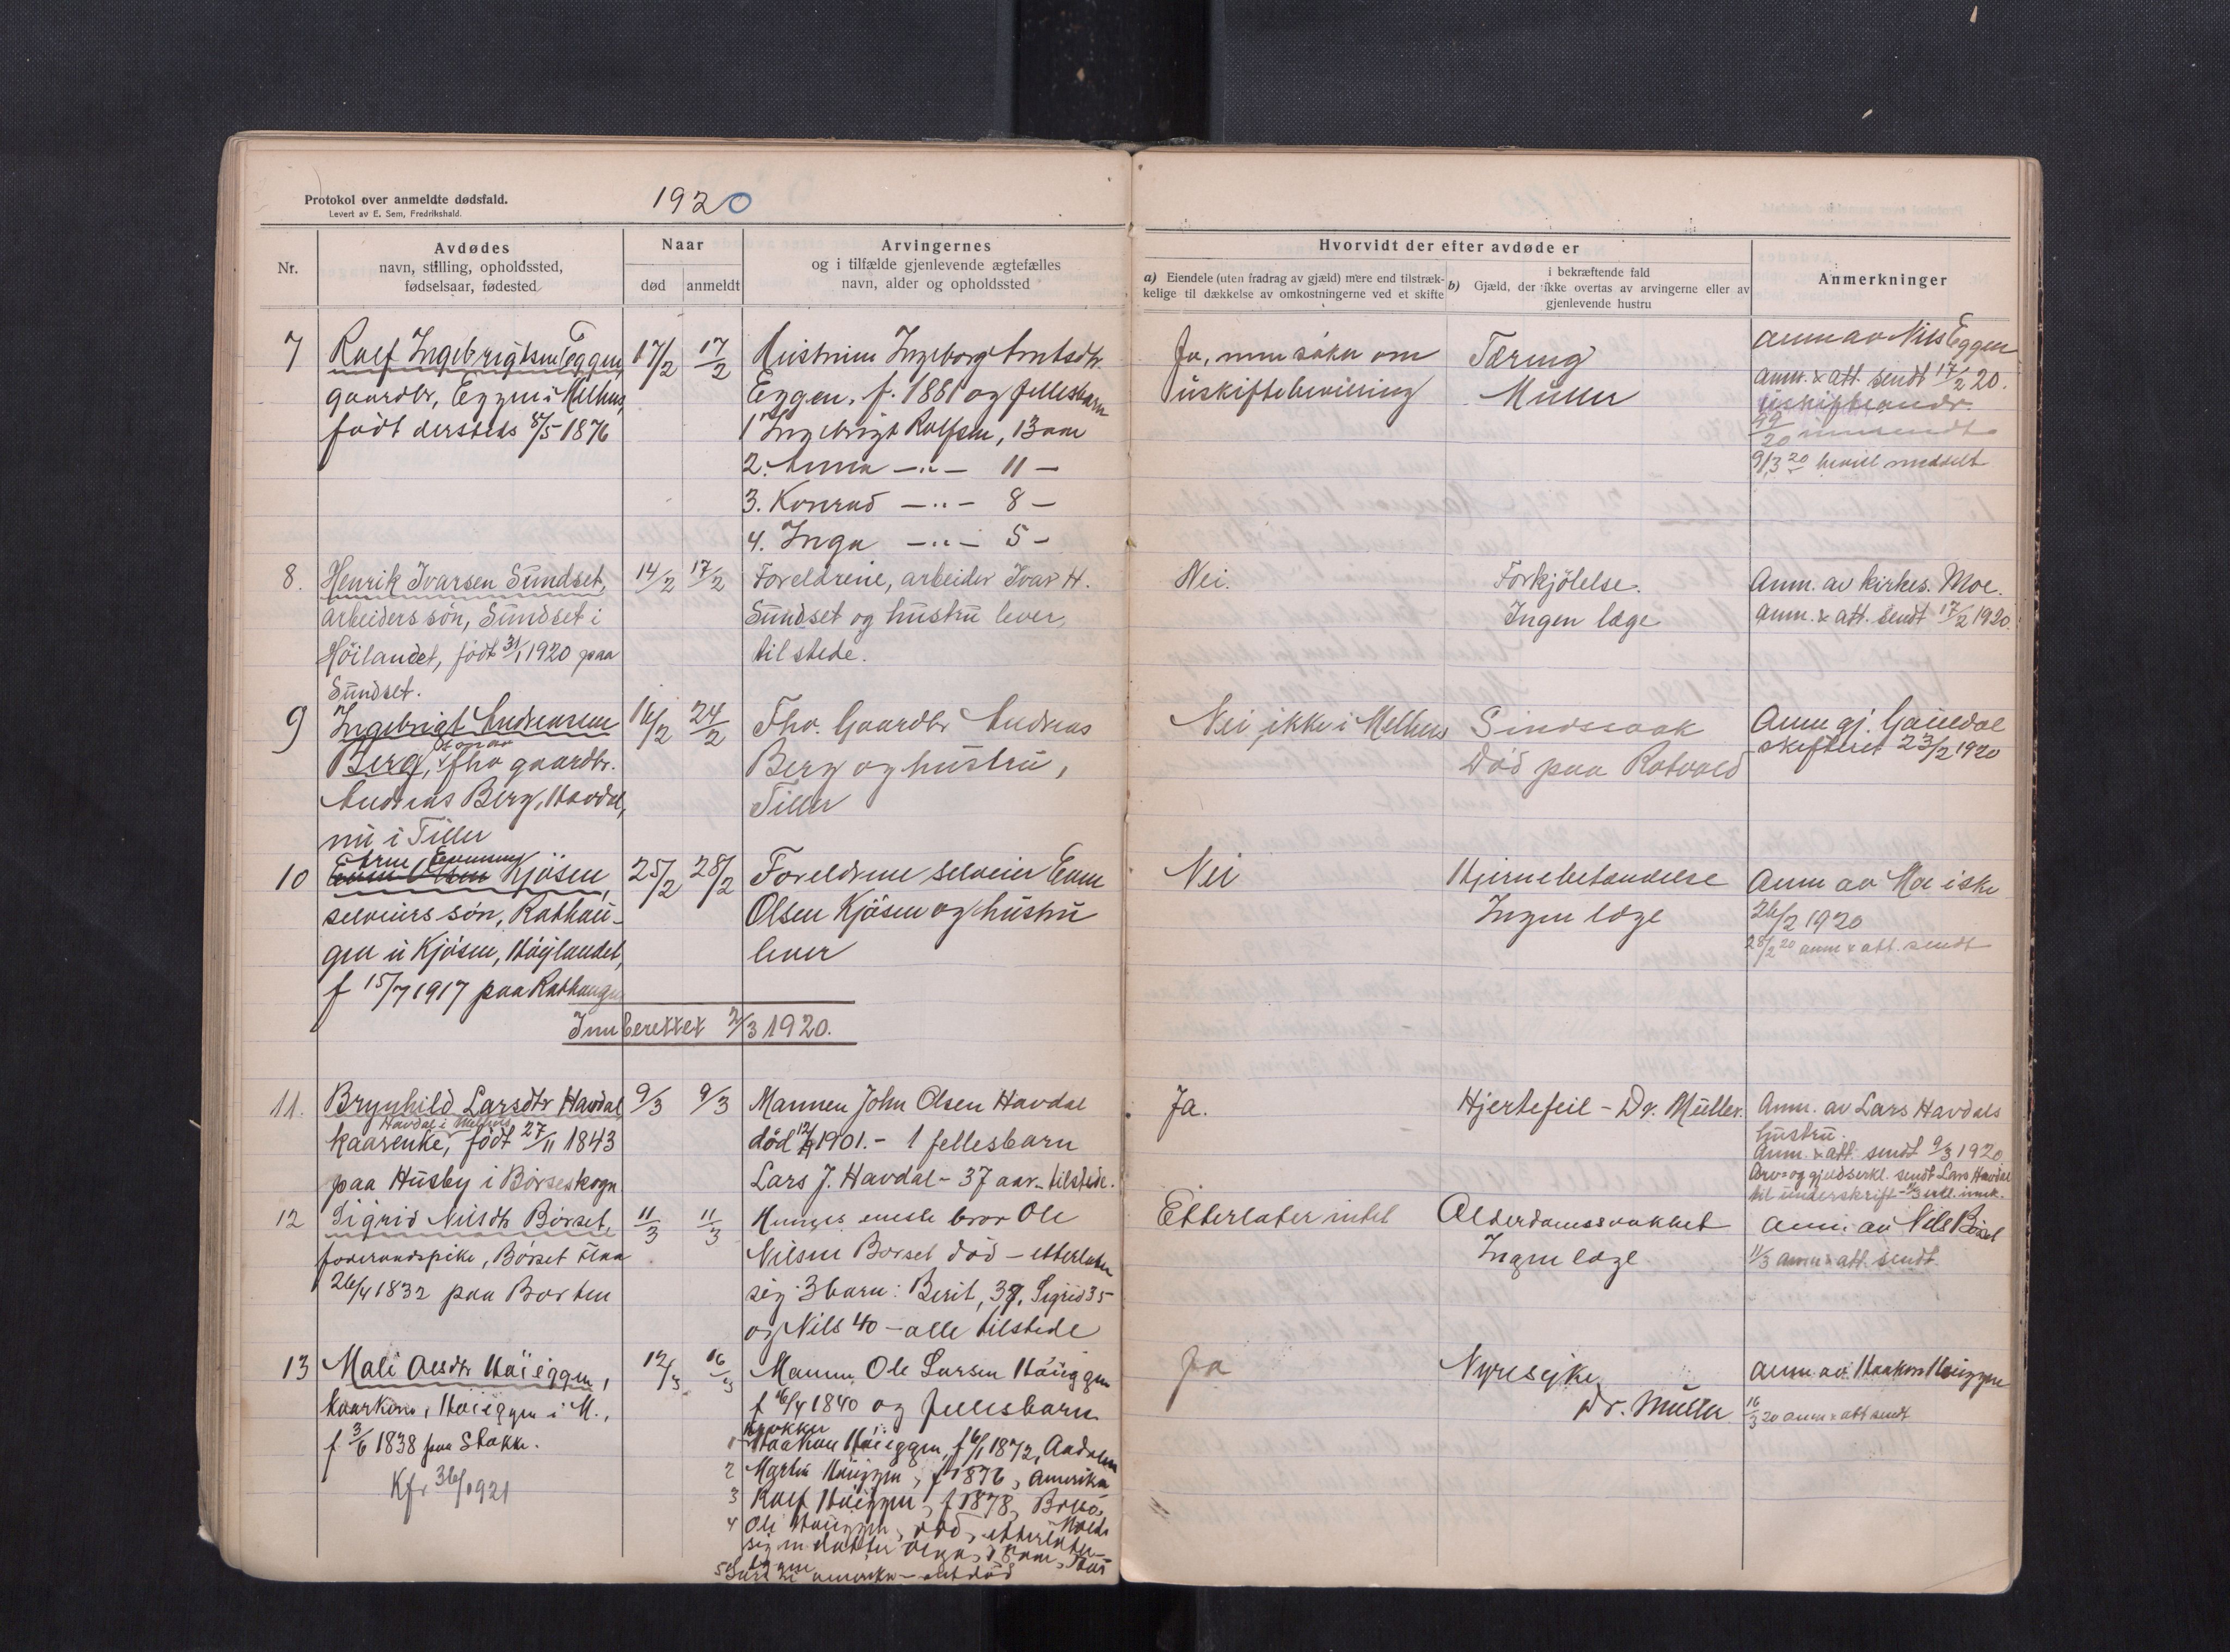 Protokol over anmeldte dødsfald.
Levert av E. Sem, Fredrikshald.
1920
Nr.
Avdødes
navn, stilling, opholdssted,
fødselsaar, fødested
Naar
død
anmeldt
Arvingernes
og i tilfælde gjenlevende ægtefælles
navn, alder og opholdssted
Hvorvidt der efter avdøde er
a) Eiendele (uten fradrag av gjæld) mere end tilstræk-
kelige til dækkelse av omkostningerne ved et skifte
i bekræftende fald
b) Gjæld, der ikke overtas av arvingerne eller av
gjenlevende hustru
Anmerkninger
7
Rolf Ingebrigtsen Eggen,
gaardbr, Eggen i Melhus,
født dersteds 8/5 1876
17/2
17/2
Hustruen Ingeborg Arntsdtr.
Eggen, f. 1881 og fellesbarn
1 Ingebrigt Rolfsen, 13 aar
2. Anna —"— 11 —
3. Konrad —"— 8 —
4. Inga —"— 5 —
Ja, men søker om
uskiftebevilling
Tæring
Müller
Anm av Nils Eggen
Anm. & att. sendt 17/2 20.
innsendt
9/3 20 bevil meddelt
8.
Henrik Ivarsen Sundset,
arbeiders søn, Sundset i
Höilandet, født 31/1 1920 paa
Sundset.
14/2
17/2
Foreldrene, arbeider Ivar H.
Sundset og hustru lever,
til stede.
Nei.
Forkjölelse.
Ingen læge
Anm. av kirkes. Moe.
Anm. & att. sendt 17/2 1920.
9
Ingebrigt Andreassen
Berg, fhv gaardbr.
Andreas Berg, Havdal,
nu i Tiller
16/2
24/2
Fhv. Gaardbr Andreas
Berg og hustru,
Tiller
Nei, ikke i Melhus
Sindssvak
Död paa Rotvold
Anm gj. Gauldal
skifteret 23/2 1920
10
Arne Evensen Kjösen,
selveiers sön, Rathau-
gen u Kjösen, Höylandet,
f 15/7 1917 paa Rathaugen
25/2
28/2
Foreldrene selveier Even
Olsen Kjösen og hustru
lever
Nei
Hjernebetændelse
Ingen læge
Anm av Moe iske
26/2 1920
28/2 20 anm & att. sendt
Innberettet 2/3 1920.
11.
Brynhild Larsdtr Havdal
Havdal i Melhus
kaarenke, født 27/11 1843
paa Husby i Börseskogn
9/3
9/3
Mannen John Olsen Havdal
död 1901. - 1 fellesbarn
Lars J. Havdal - 37 aar - tilstede.
Ja.
Hjertefeil - Dr. Müller.
Anm. av Lars Havdals
hustru.
Anm. & att. sendt 9/3 1920
Arv- og gjeldserkl. sendt Lars Havdal
til underskrift - 11/3 erkl. innk.
12
Sigrid Nilsdtr Börset,
foderaadspike, Börset Flaa
26/4 1832 paa Borten
11/3
11/3
Hennes eneste bror Ole
Nilsen Borset död - etterlater
sig 3 barn: Berit, 37, Sigrid 35
og Nils 40 - alle tilstede
Etterlater intet
Alderdomssvakhet
Ingen læge
Anm. av Nils Börset
11/3 anm & att. sendt.
13
Mali Olsdtr Höieggen,
kaarkone, Höieggen i M.,
f. 3/6 1838 paa Stokke.
Kfr 36/1921
12/3
16/3
Mannen Ole Larsen Höieggen
f 16/4 1840 og fellesbarn
1 Haakon Höieggen, f 6/1 1872, Aadalen
2 Martin Höieggen, f 1876, Amerika
3 Rolf Höieggen, f 1878,
4 Ole Höieggen, död, etterlater
sig en datter Olga,
5 Lars i Amerika - död
Ja
Nyresyke
Dr. Müller
Anm. av Haakon Höieggen
16/3 20 anm & att sendt